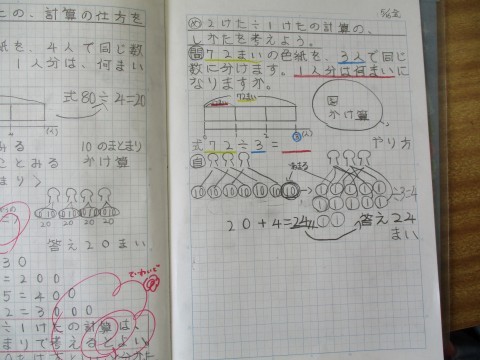 この、計算の仕方を
紙を、4人で同じ数
1人分は、何まい
式80÷4=20
10のまとまり
かけ算
20 20 20 20
答え20まい
30
=200
5=400
2=3000
÷1けたの計算は、
まりで考えるとよい
ていねいで
5/6
め 2けた÷1けたの計算の、
しかたを考えよう。
問 72まいの色紙を、3人で同じ
数に分けます。1人分は何まいに
なりますか。
72まい
図
かけ算
(人)
式 72÷3=
やり方
自
あまる
10 10 10 10 10 10 10
÷3=4
20+4=24
答え24
まい